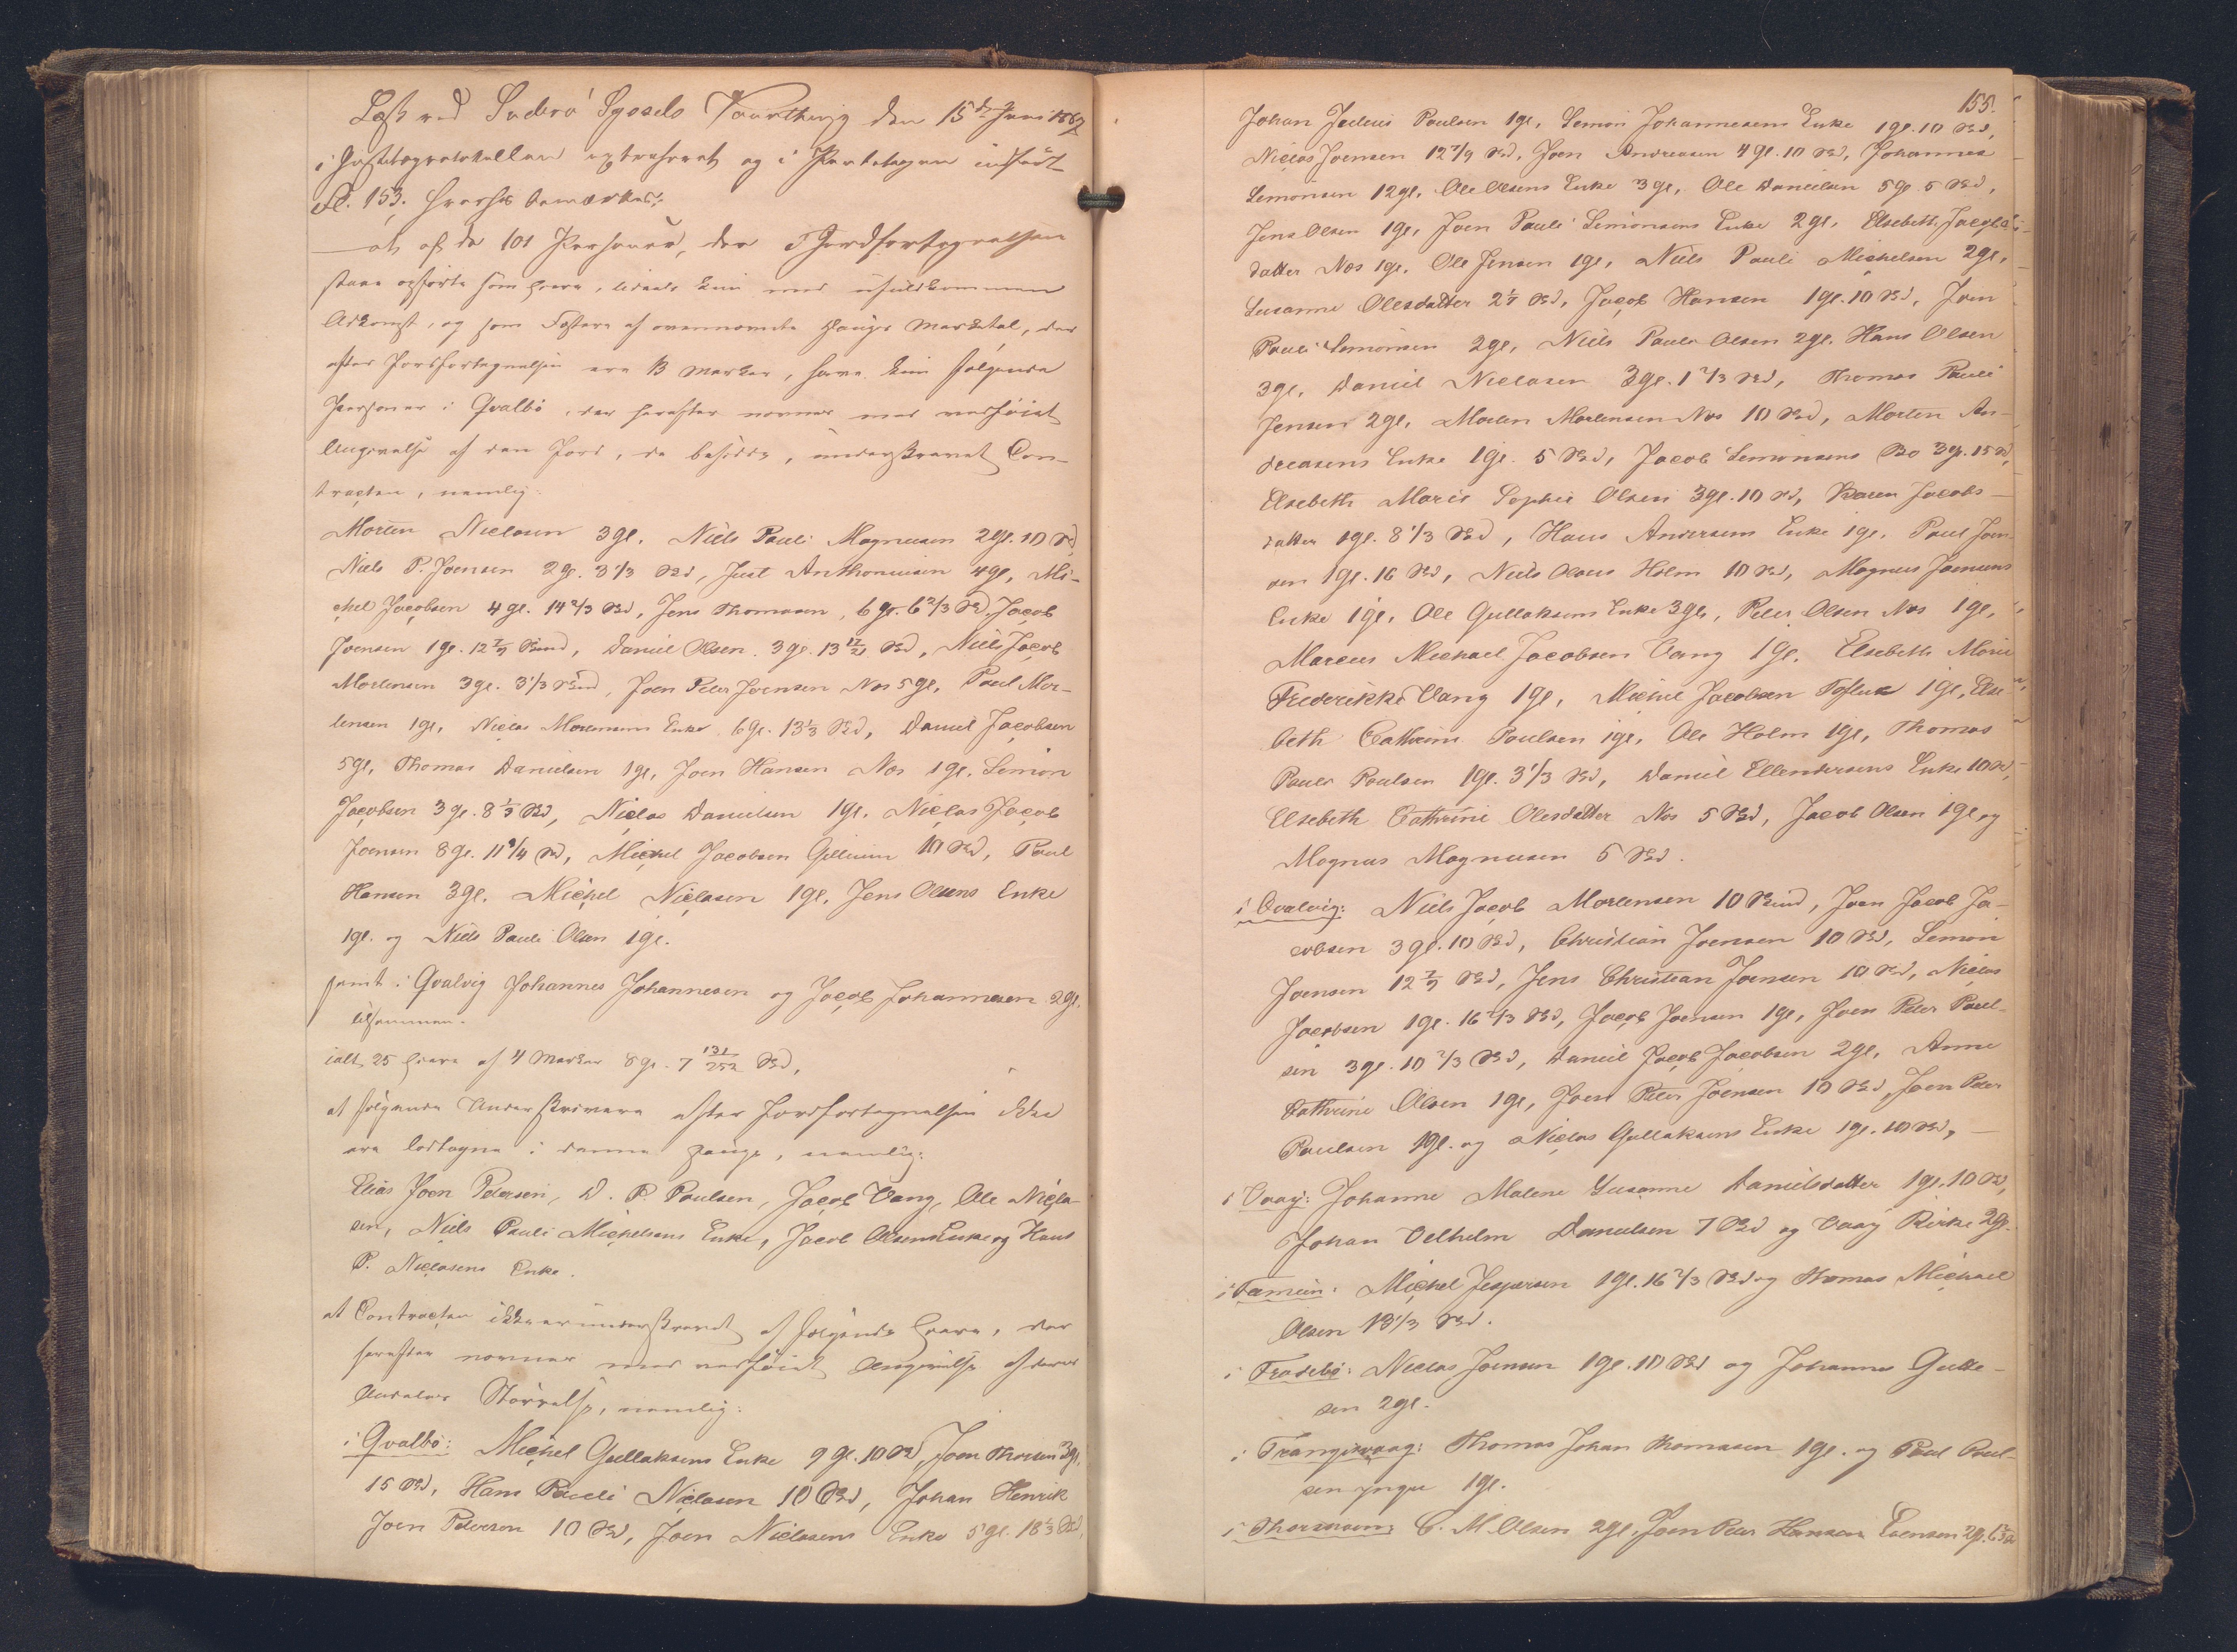 Læst ved Suderø Syssels Vaarthing den 15de Juni 1867
i Justitsprotokollen extraheret og i Pantebogen indført
Fol. 153. hvorhos bemærkes:
at af de 101 Personer, der i Jordfortegnelsen
staae opførte som Eiere, tildeels kun med ufuldkommen
Adkomst, og som Fæstere af ovennævnte Hauges Marketal, der
efter Jordfortegnelsen ere 13 Marker, have kun følgende
Personer i Qvalbø, der herefter nævnes med vedføiet
Angivelse af den Jord, de besidde, underskrevet Con-
tracten, nemlig:
Morten Niclasen 3 gl. Niels Pauli Magnusen 2 gl. 10 Skd
Niels P. Joensen 2 g. 3 1/3 Skd, Just Anthoniusen 4 gl, Mi-
chel Jacobsen 4 gl. 14 2/3 Skd, Jens Thomasen, 6 gl. 6 2/3 Skd, Jacob
Joensen 1 gl. 12 7/9 Skind, Daniel Olsen 3 gl. 13 17/21 Skd, Niels Jacob
Mortensen 3 gl. 3 1/3 Skind, Joen Peter Joensen Næs 5 gl, Poul Mor-
tensen 1 gl, Niclas Mortensens Enke 6 gl. 13 1/3 Skd, Daniel Jacobsen
5 gl, Thomas Danielsen 1 gl, Joen Hansen Næs 1 gl. Simon
Jacobsen 3 gl. 8 1/3 Skd, Niclas Danielsen 1 gl. Niclas Jacob
Joensen 8 gl. 11 1/4 Skd, Michel Jacobsen 10 Skd, Poul
Hansen 3 gl. Michel Niclasen 1 gl, Jens Olsens Enke
1 gl. og Niels Pauli Olsen 1 gl.
samt i Qvalvig Johannes Johannesen og Jacob Johannesen 2 gl.
tilsammen.
ialt 25 Eiere af 4 Marker 8 gl. 7 131/252 Skd,
at følgende Underskrivere efter Jordfortegnelsen ikke
ere lodtagne i denne Hauge, nemlig:
Elias Joen Petersen, D. P. Poulsen, Jacob Vang, Ole Nicla-
sen, Niels Pauli Michelsens Enke, Jacob Olsens Enke og Hans
P. Niclasens Enke.
at Contracten ikke er underskrevet af følgende Eiere, der
herefter nævnes med vedføiet Angivelse af deres
Andeles Størrelse, nemlig:
i Qvalbø: Michel Gullaksens Enke 9 gl. 10 Skd, Joen Thomsen 3 gl.
15 Skd, Hans Pauli Niclasen 10 Skd, Johan Henrik
Joen Petersen 10 Skd, Joen Niclasens Enke 5 gl. 18 1/3 Skd,
155.
Johan Julius Poulsen 1 gl, Simon Johannesens Enke 1 gl. 10 Skd,
Niclas Joensen 12 7/9 Skd, Joen Andreasen 4 gl. 10 Skd, Johannes
Simonsen 12 gl. Ole Olsens Enke 3 gl, Ole Danielsen 5 gl. 5 Skd,
Jens Olsen 1 gl, Joen Pauli Simonsens Enke 2 gl. Elsebeth Jacobs-
datter Næs 1 gl. Ole Jensen 1 gl, Niels Pauli Michelsen 2 gl,
Susanne Olesdatter 2 1/7 Skd, Jacob Hansen 1 gl. 10 Skd, Joen
Pauli Simonsen 2 gl, Niels Pauli Olsen 2 gl. Hans Olsen
3 gl, Daniel Niclasen 3 gl. 1 2/3 Skd, Thomas Pauli
Jensen 2 gl, Morten Mortensen Næs 10 Skd, Morten An-
dreasens Enke 1 gl. 5 Skd, Jacob Simonsens Bo 3 gl. 15 Skd,
Elsebeth Marie Sophie Olsen 3 gl. 10 Skd, Karen Jacobs-
datter 1 gl. 8 1/3 Skd, Hans Andersens Enke 1 gl, Poul Joen-
sen 1 gl. 16 Skd, Niels Olaus Holm 10 Skd, Magnus Joensens
Enke 1 gl, Ole Gullaksens Enke 3 gl, Peter Olsen Næs 1 gl,
Marcus Michael Jacobsen Vang 1 gl. Elsebeth Marie
Frederikke Vang 1 gl, Michel Jacobsen 1 gl, Else-
beth Cathrine Poulsen 1 gl, Ole Holm 1 gl, Thomas
Pauli Poulsen 1 gl. 3 1/3 Skd, Daniel Ellendersens Enke 10 Skd,
Elsebeth Cathrine Olesdatter Næs 5 Skd, Jacob Olsen 1 gl og
Magnus Magnusen 5 Skd.
i Qvalvig: Niels Jacob Mortensen 10 Skind, Joen Jacob Ja-
cobsen 3 gl. 10 Skd, Christian Joensen 10 Skd, Simon
Joensen 12 7/9 Skd, Jens Christian Joensen 10 Skd, Niclas
Jacobsen 1 gl. 16 2/3 Skd, Jacob Joensen 1 gl, Joen Peter Poul-
sen 3 gl. 10 2/3 Skd, Daniel Jacob Jacobsen 2 gl, Anne
Cathrine Olsen 1 gl, Joen Peter Joensen 10 Skd, Joen Peter
Poulsen 1 gl. og Niclas Gullaksens Enke 1 gl. 10 Skd,
i Vaag: Johanne Malene Susanne Danielsdatter 1 gl. 10 Skd,
Johan Vilhelm Danielsen 7 Skd og Vaag Kirke 2 gl.
i Famien: Michel Jespersen 1 gl. 16 2/3 Skd og Thomas Michael
Olsen 13 1/3 Skd.
i Frodebø: Niclas Joensen 1 gl. 10 Skd og Johannes Gutte-
sen 2 gl.
i Trangisvaag: Thomas Johan Thomasen 1 gl. og Poul Poul-
sen yngre 1 gl.
i C. M. Olsen 2 gl, Joen Peter Hansen Evensen 2 gl. 6 2/3 Skd